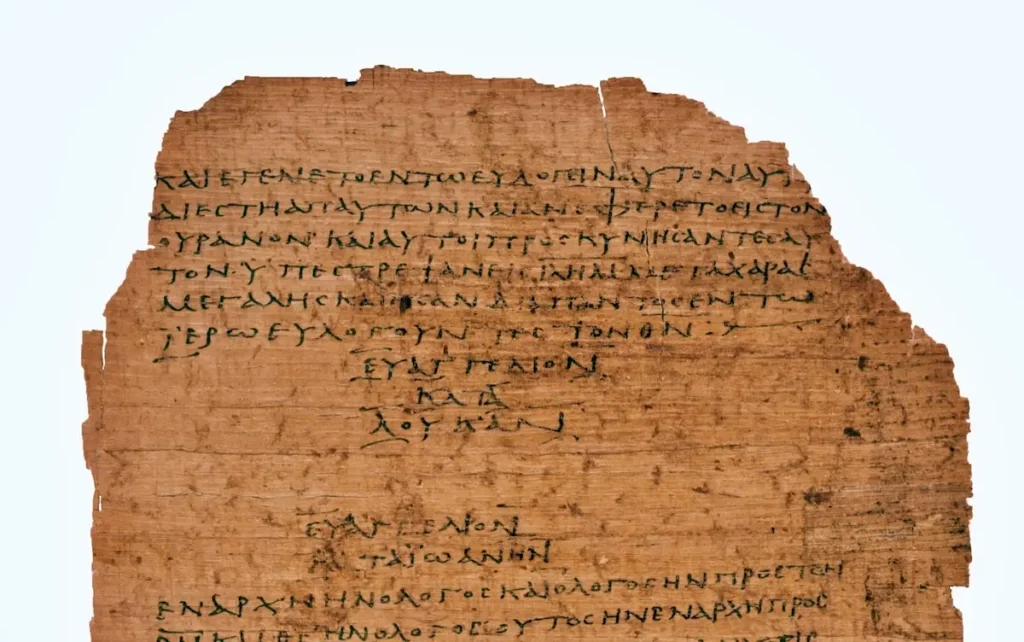 ΚΑΙΕΓΕΝΕΤΟΕΝΤΩΕΥΛΟΓΕΙΝΑΥΤΟΝΑΥΤ
ΔΙΕϹΤΗΑΠΑΥΤΩΝΚΑΙΑΝΕΦΕΡΕΤΟΕΙϹΤΟΝ
ΟΥΡΑΝΟΝ·ΚΑΙΑΥΤΟΙΠΡΟϹΚΥΝΗϹΑΝΤΕϹΑΥ
ΤΟΝ·ΥΠΕϹΤΡΕΨΑΝΕΙϹΙΛΗΜΜΕΤΑΧΑΡΑϹ
ΜΕΓΑΛΗϹΚΑΙΗϹΑΝΔΙΑΠΑΝΤΟϹΕΝΤΩ
ΙΕΡΩΕΥΛΟΓΟΥΝΤΕϹΤΟΝΘΝ·
ΕΥΑΓΓΕΛΙΟΝ
ΚΑΤΑ
ΛΟΥΚΑΝ
ΕΥΑΓΓΕΛΙΟΝ
ΚΑΤΑΙΩΑΝΗΝ
ΕΝΑΡΧΗΗΝΟΛΟΓΟϹΚΑΙΟΛΟΓΟϹΗΝΠΡΟϹΤΟΝ
ΘΝΚΑΙΘϹΗΝΟΛΟΓΟϹΟΥΤΟϹΗΝΕΝΑΡΧΗΠΡΟϹ